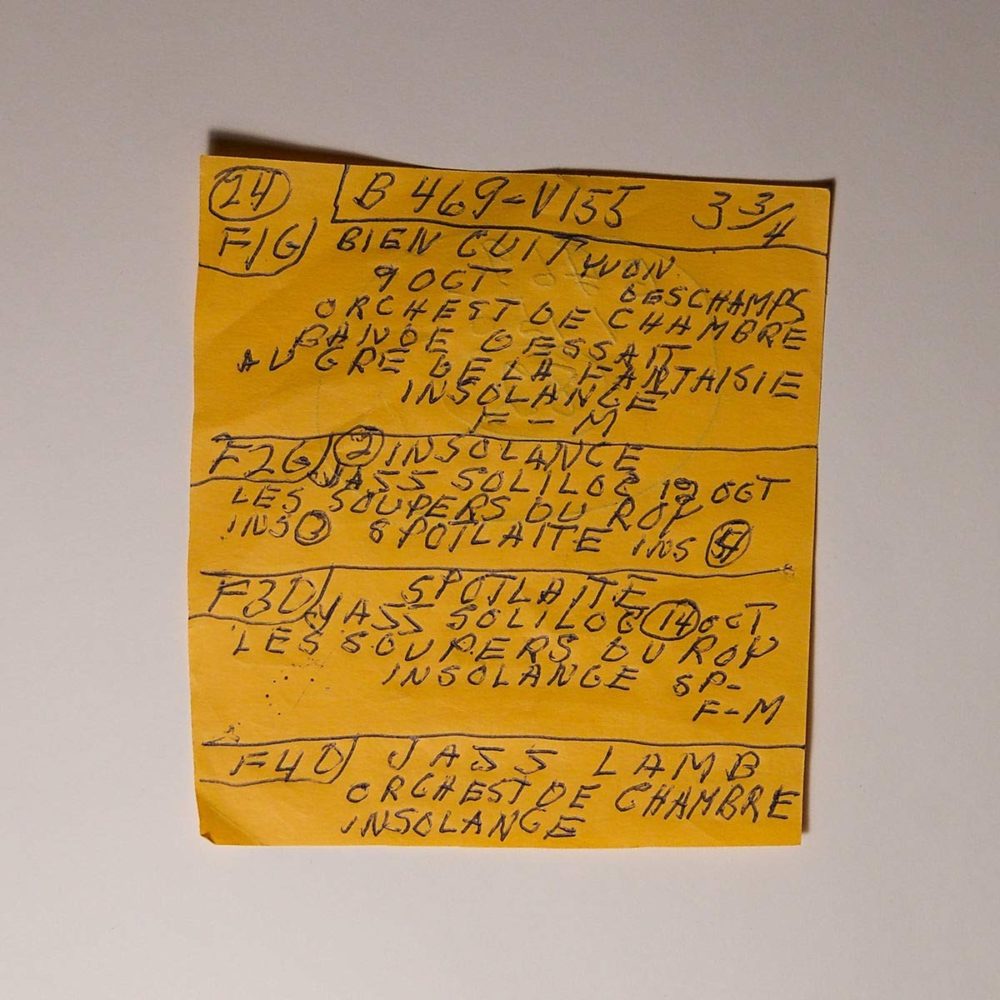 24 B 469-V155 3 3/4
F1G BIEN CUIT YVON
9 OCT DESCHAMPS
ORCHEST DE CHAMBRE
BANDE DESSAIT
AU GRE DE LA FANTAISIE
INSOLANGE
F-M
F2G 2 INSOLANCE
JASS SOLILOG 19 OCT
LES SOUPERS DU ROY
INS 3 SPOTLAITE INS 4
F3D SPOTLAITE
JASS SOLILOG 14 OCT
LES SOUPERS DU ROY
INSOLANGE SP-
F-M
F4D JASS LAMB
ORCHEST DE CHAMBRE
INSOLANGE